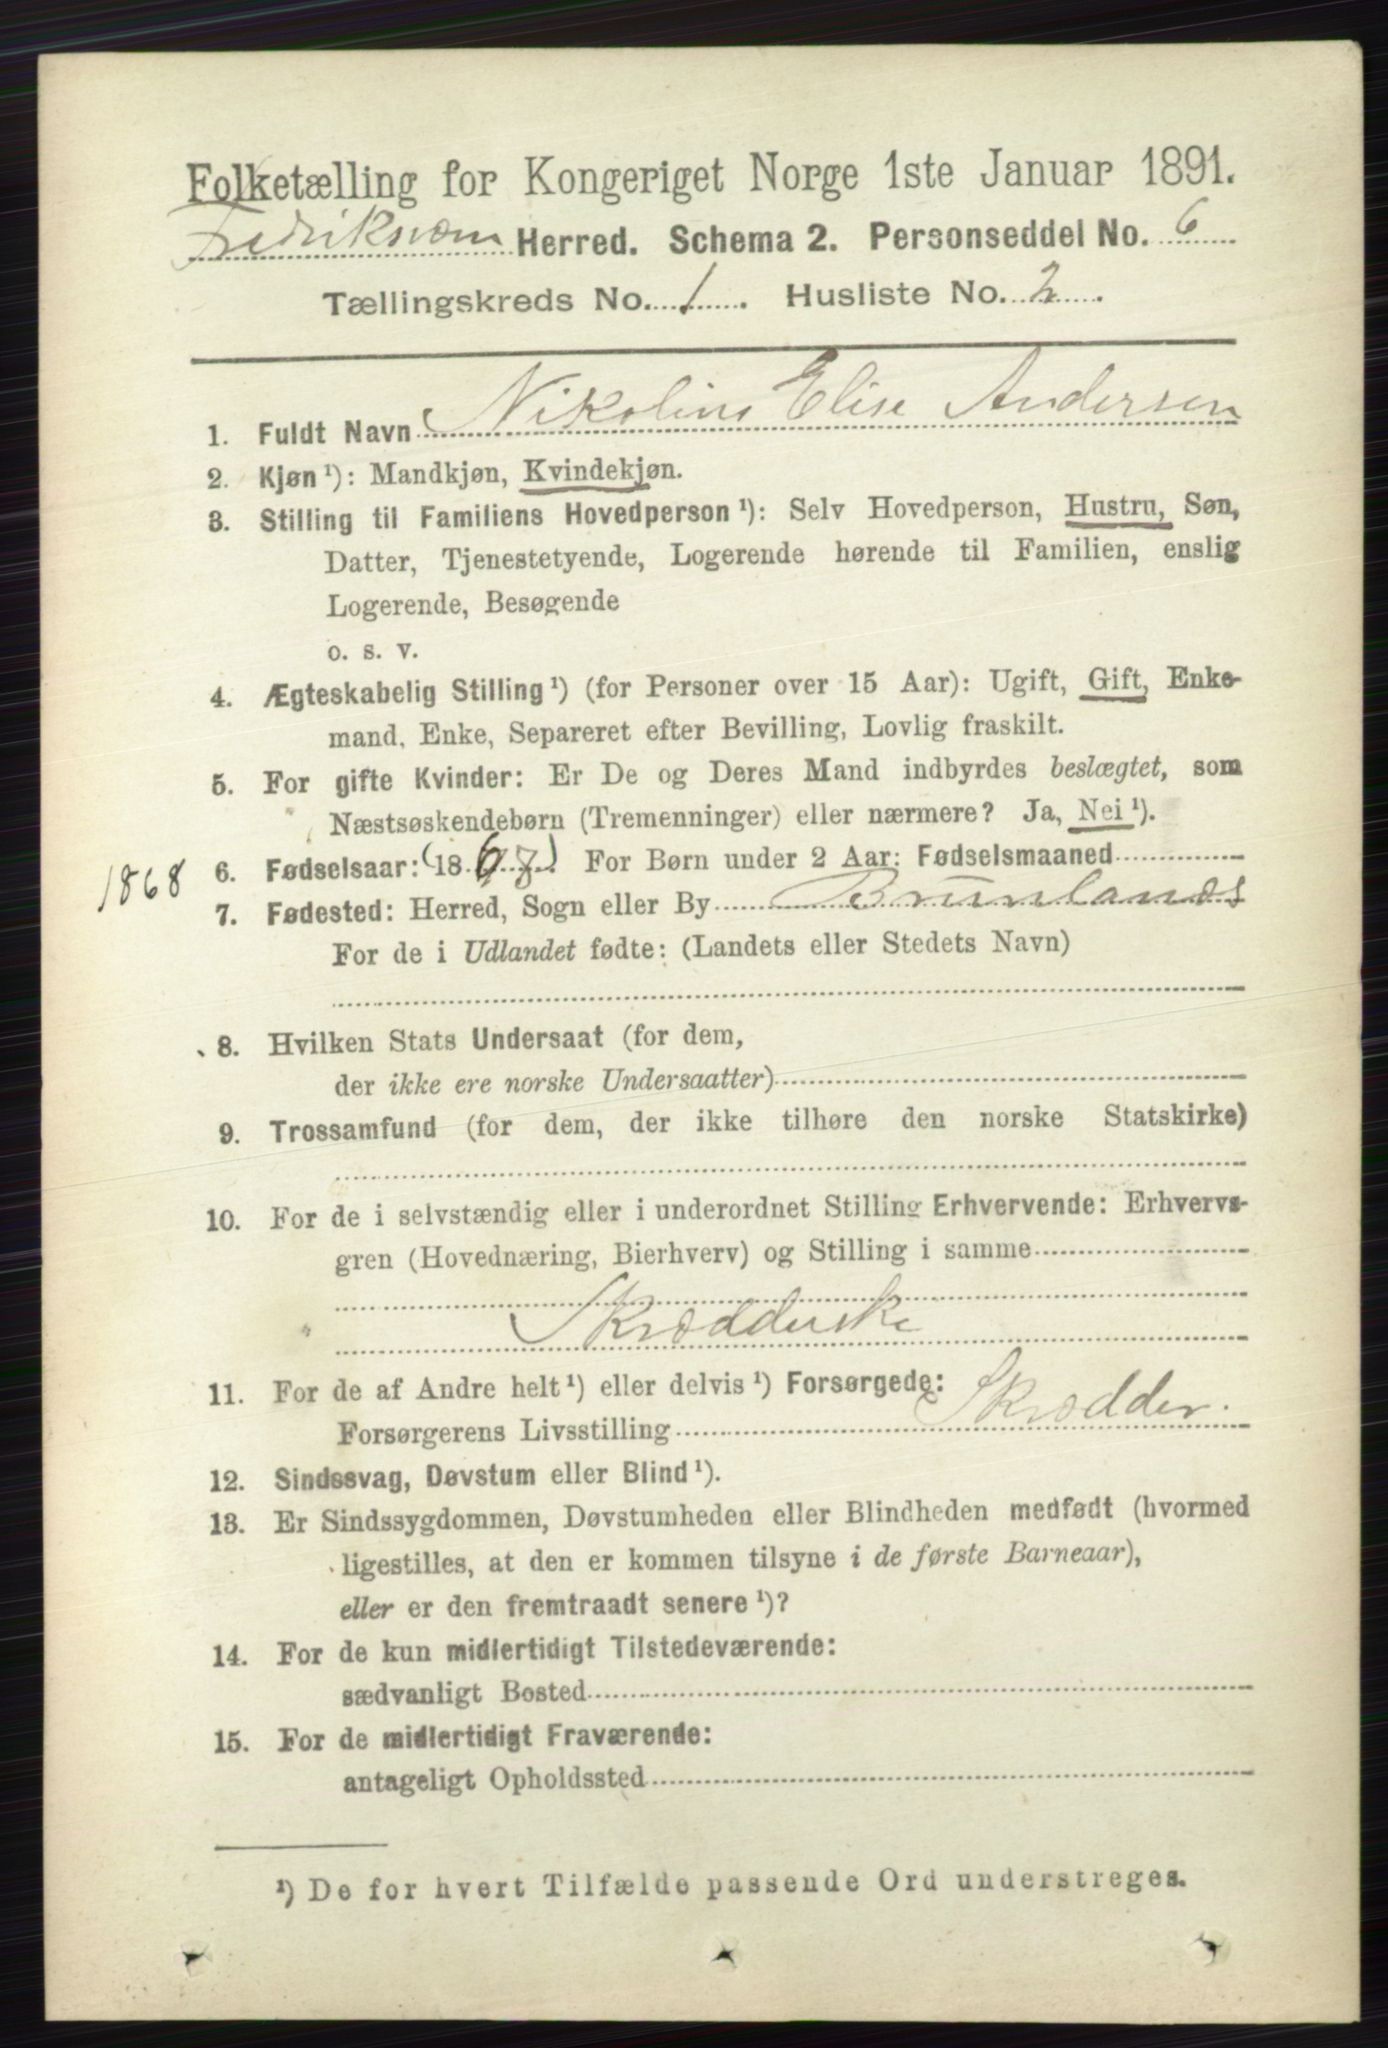 Folketælling for Kongeriget Norge 1ste Januar 1891.
Fredriksværn Herred. Schema 2. Personseddel No. 6
Tællingskreds No. 1. Husliste No. 2.
1. Fuldt Navn Nikoline Elise Andersen
2. Kjøn ¹): Mandkjøn, Kvindekjøn.
3. Stilling til Familiens Hovedperson ¹): Selv Hovedperson, Hustru, Søn,
Datter, Tjenestetyende, Logerende hørende til Familien, enslig
Logerende, Besøgende
o. s. v.
4. Ægteskabelig Stilling ¹) (for Personer over 15 Aar): Ugift, Gift, Enke-
mand, Enke, Separeret efter Bevilling, Lovlig fraskilt.
5. For gifte Kvinder: Er De og Deres Mand indbyrdes beslægtet, som
Næstsøskendebørn (Tremenninger) eller nærmere? Ja, Nei ¹).
1868 6. Fødselsaar: (1868) For Børn under 2 Aar: Fødselsmaaned
7. Fødested: Herred, Sogn eller By Brunlanæs
For de i Udlandet fødte: (Landets eller Stedets Navn)
8. Hvilken Stats Undersaat (for dem,
der ikke ere norske Undersaatter)
9. Trossamfund (for dem, der ikke tilhøre den norske Statskirke)
10. For de i selvstændig eller i underordnet Stilling Erhvervende: Erhvervs-
gren (Hovednæring, Bierhverv) og Stilling i samme
Skrædderske
11. For de af Andre helt ¹) eller delvis ¹) Forsørgede:
Forsørgerens Livsstilling Skrædder.
12. Sindssvag, Døvstum eller Blind ¹).
13. Er Sindssygdommen, Døvstumheden eller Blindheden medfødt (hvormed
ligestilles, at den er kommen tilsyne i de første Barneaar),
eller er den fremtraadt senere ¹)?
14. For de kun midlertidigt Tilstedeværende:
sædvanligt Bosted
15. For de midlertidigt Fraværende:
antageligt Opholdssted
¹) De for hvert Tilfælde passende Ord understreges.